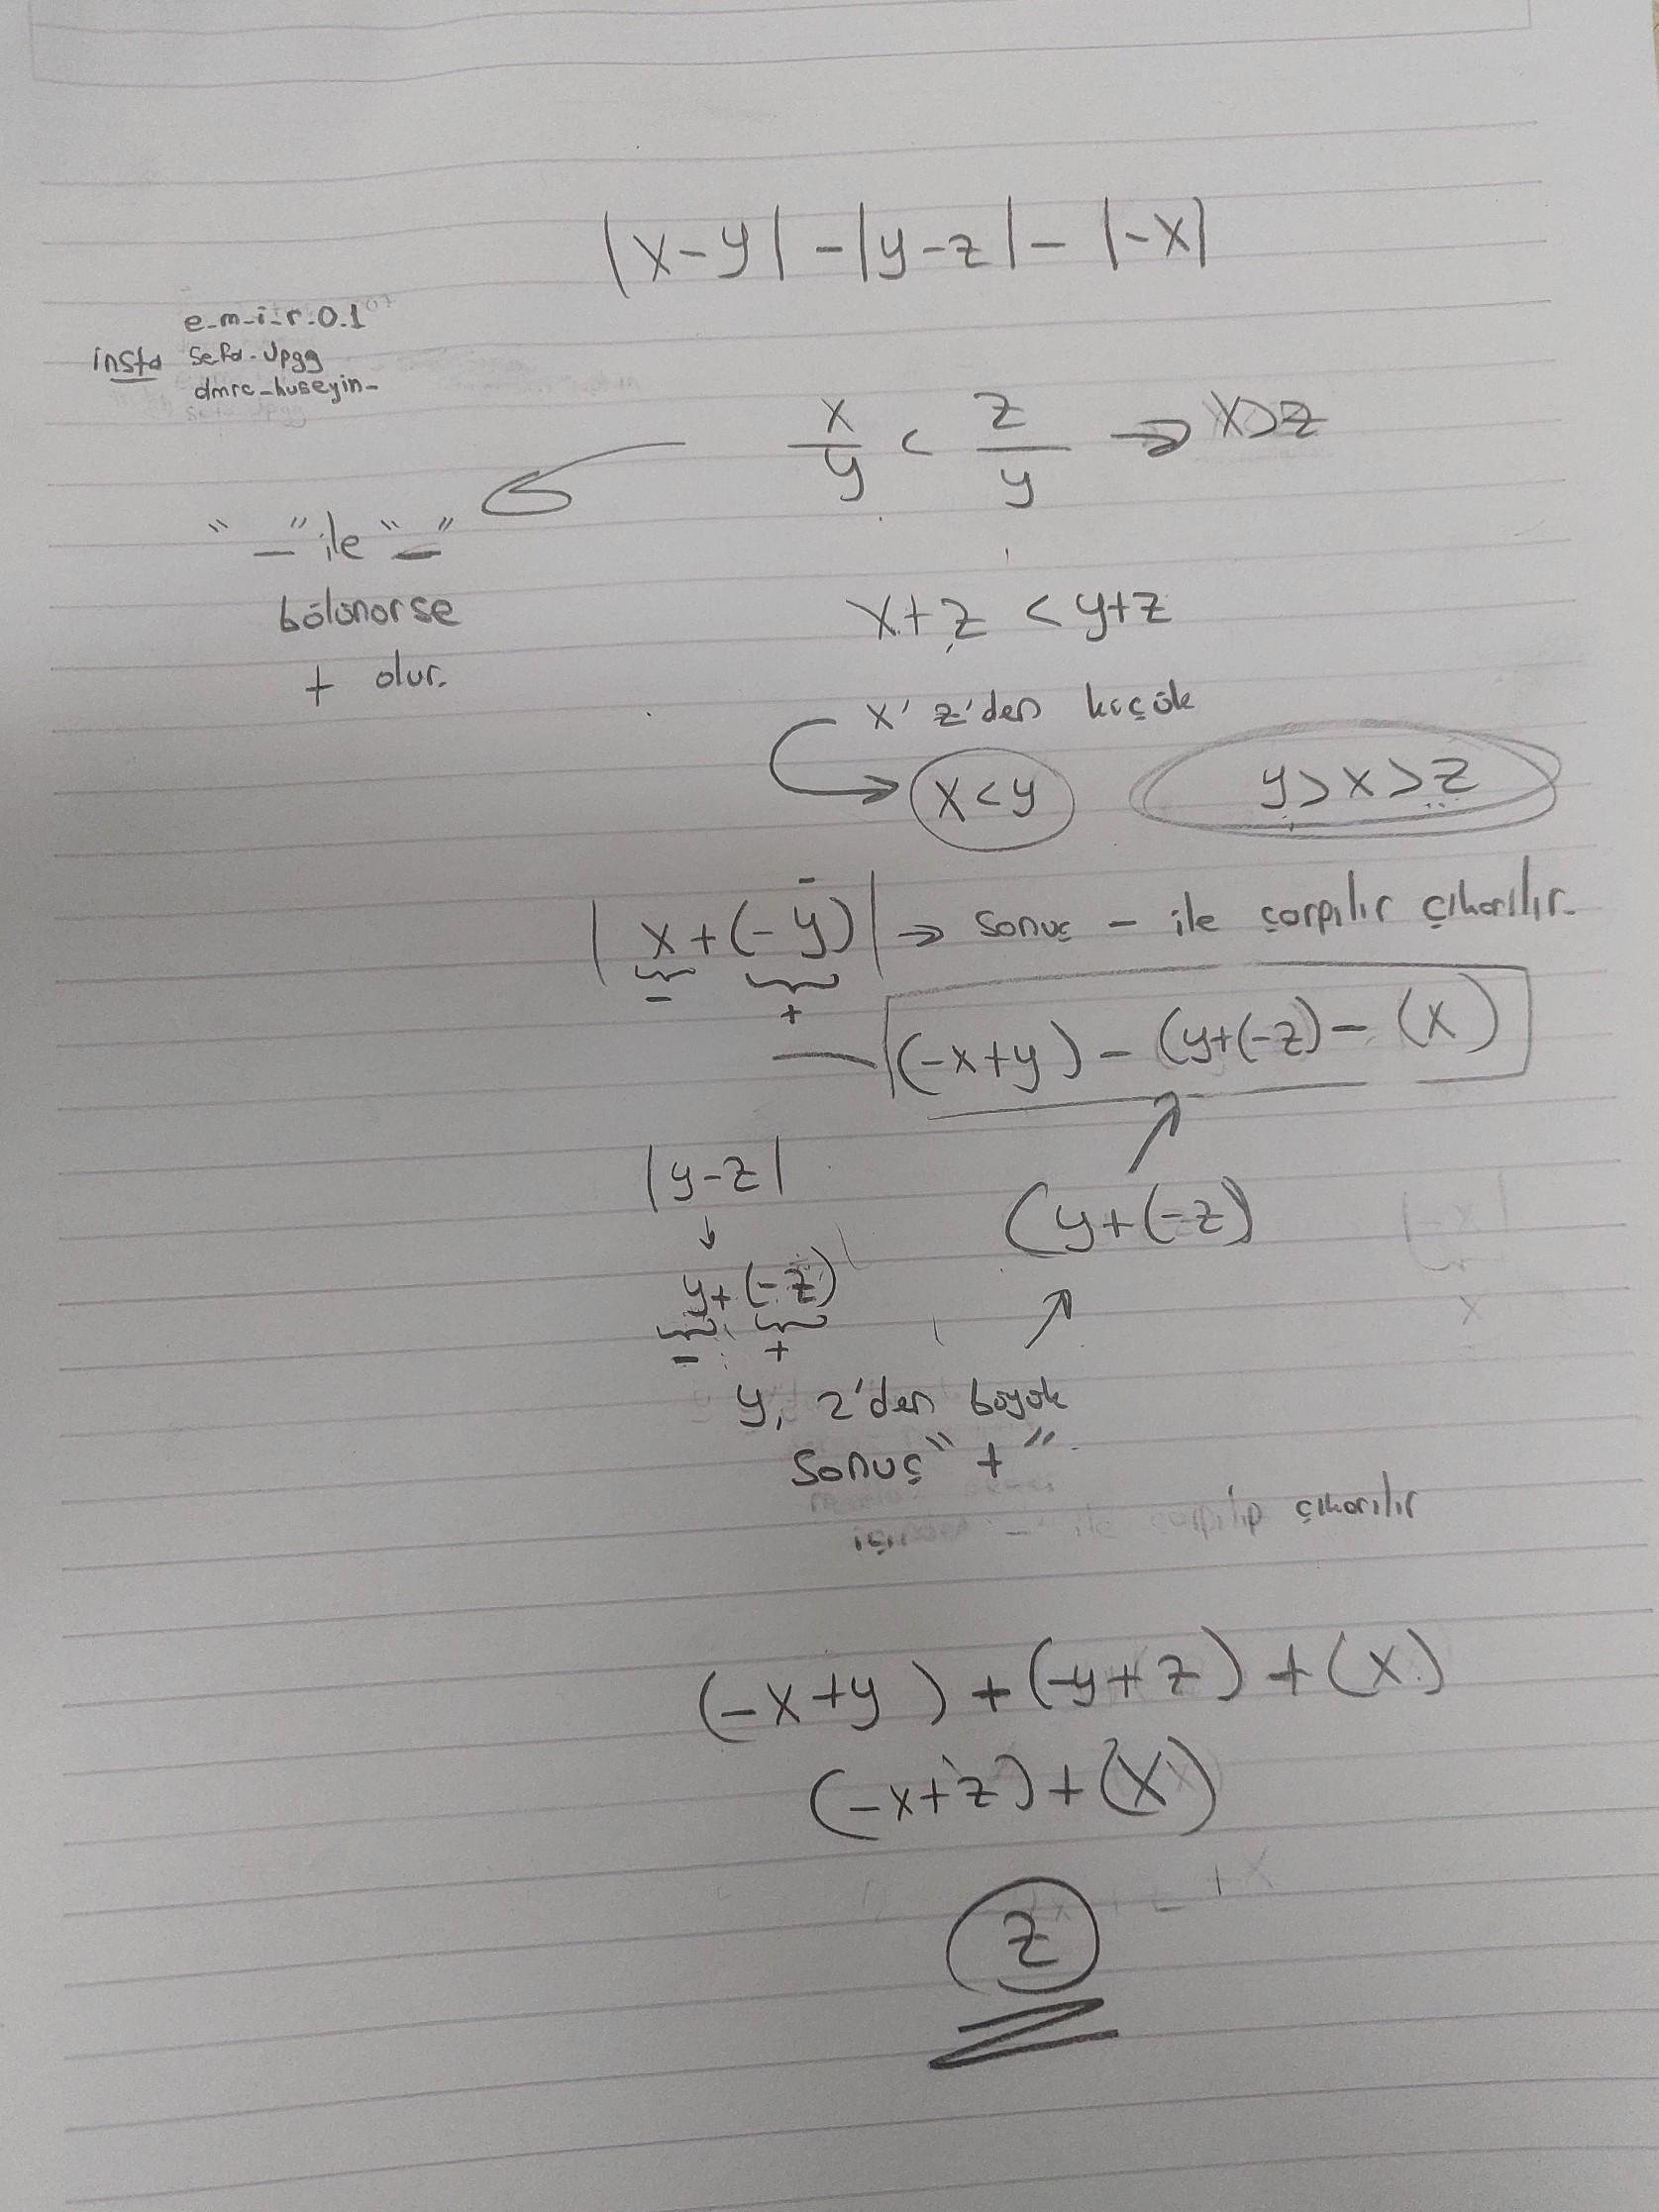 |x-y| - |y-z| - |-x|
e-m-i-r-0.1
insta sefa-Jpgg
dmrc-huseyin-
x/y < z/y → x>z
"-" ile "-"
bölünürse
+ olur.
x+z < y+z
x' z'den küçük
x<y y>x>z
|x+(-y)| → sonuç - ile çarpılır çıkarılır.
- +
(-x+y) - (y+(-z) - (x)
|y-z|
(y+(-z)
y+(-z)
- +
y, z'den büyük
sonuç "+"
ile çarpılıp çıkarılır
(-x+y) + (-y+z) + (x)
(-x+z) + (x)
z